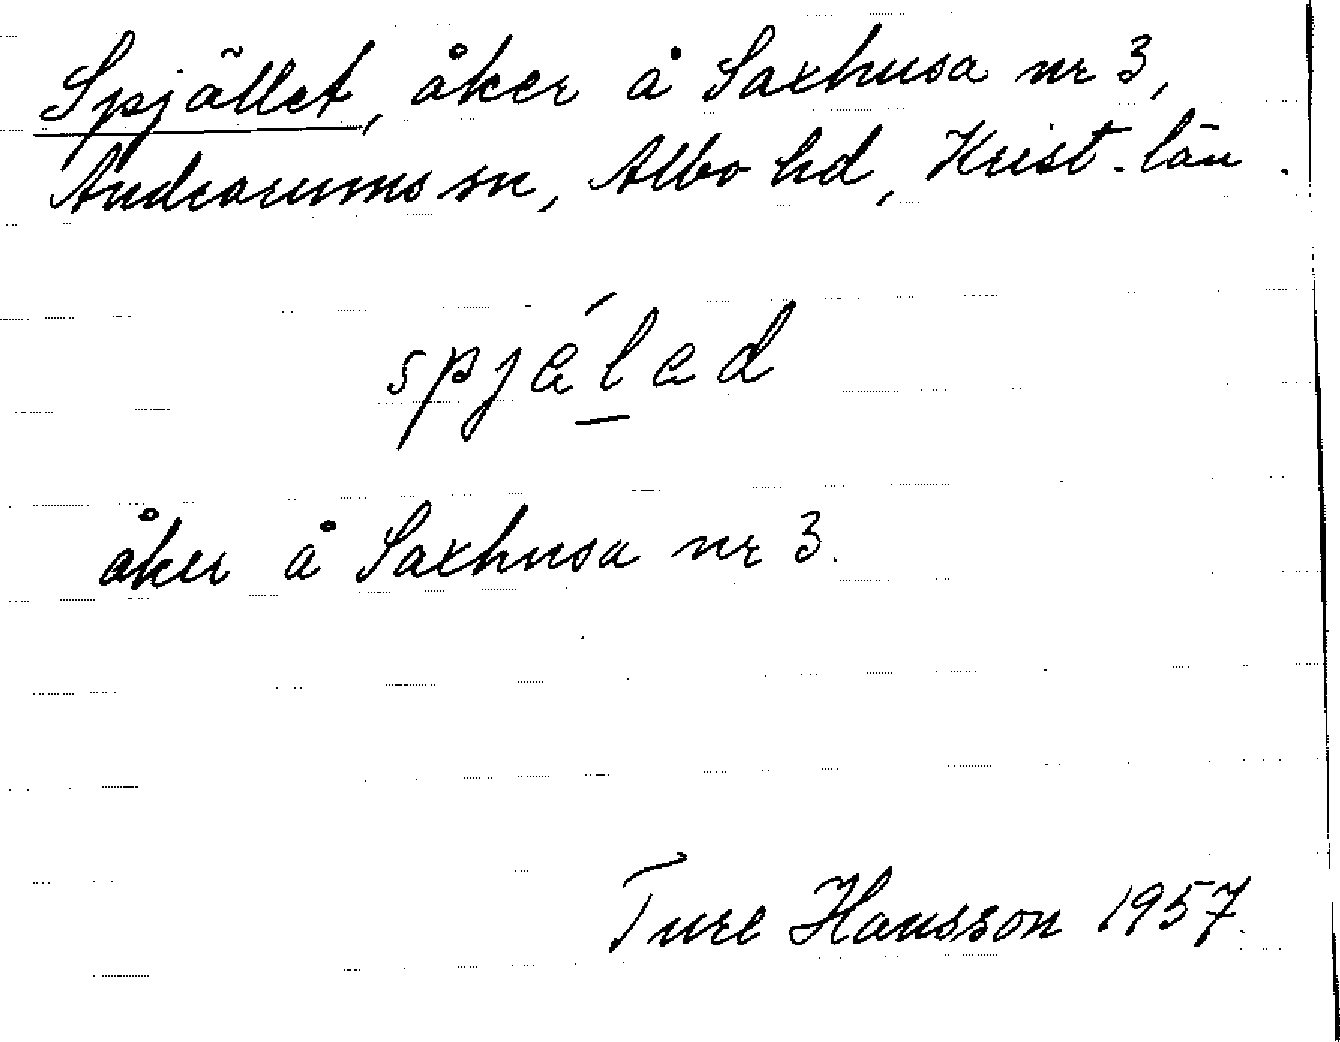 Spjället, åker å Saxhusa nr 3,
Andrarums sn, Albo hd, Krist. län.
spjélad
åker å Saxhusa nr 3.
Ture Hansson 1957.